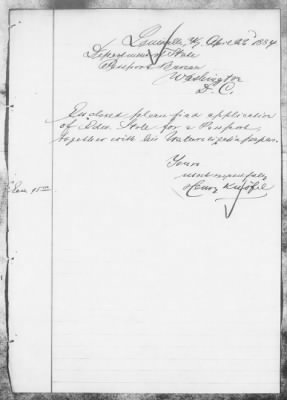 Louisville, Ky, April 22d 1884
Department of State
Passport Bureau
Washington
D. C.
Enclosed please find application
of Edw. for a Passport,
together with his Naturalization papers.
Yours
most respectfully
Henry